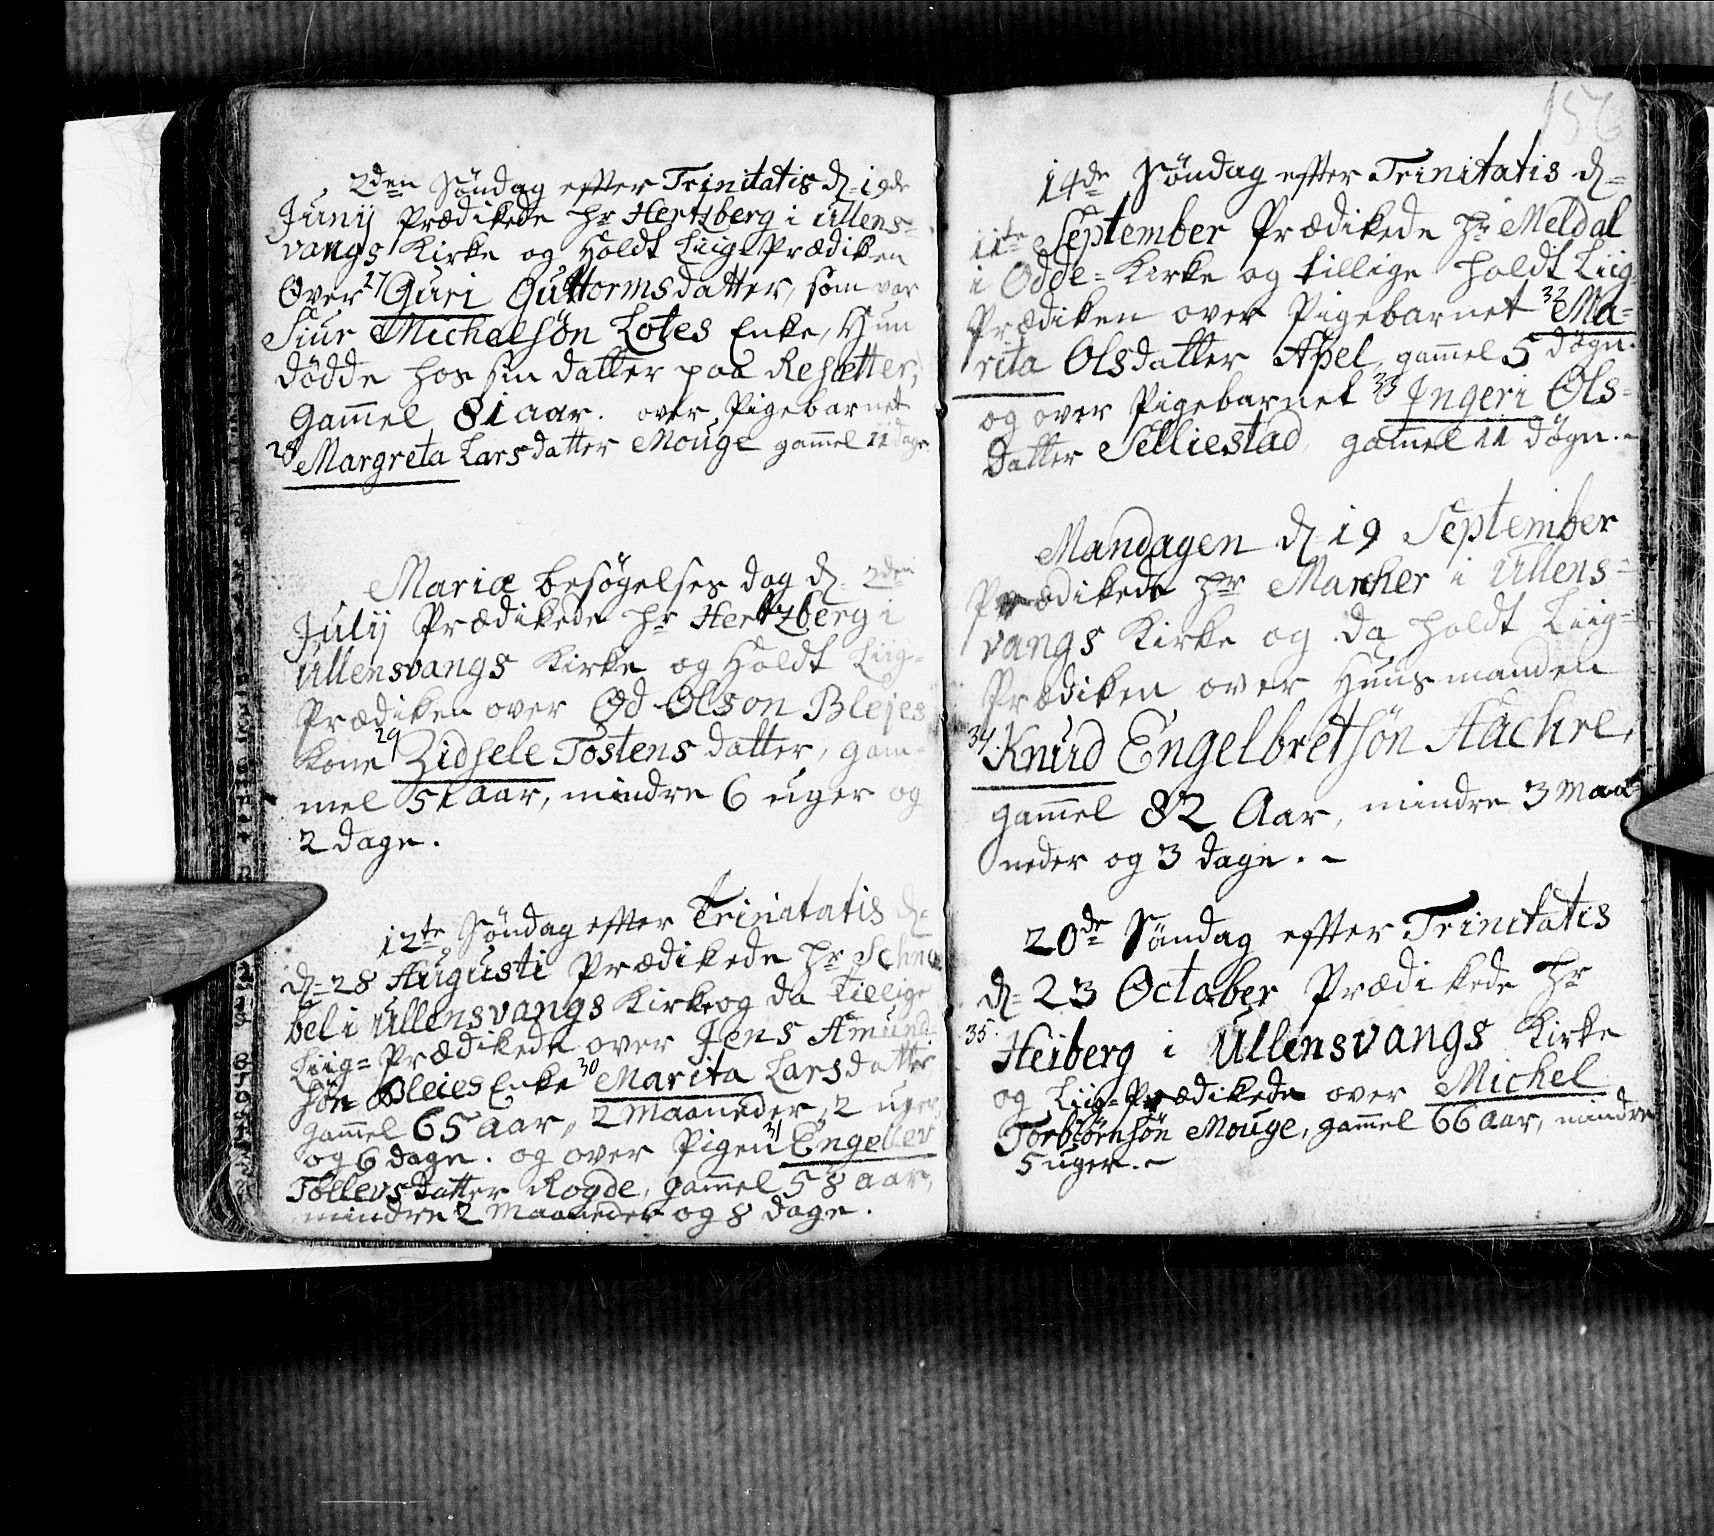 2den Søndag efter Trinitatis d= 19de
Junij Prædikede hr Hertzberg i Ullens=
vangs Kirke og Holdt Liig-Prædiken
Over 27 Guri Guttormsdatter, som var
Siur Michelsøn Lotes Enke, Hun
dødde hos sin datter paa Resætter,
Gam̄el 81 aar. over Pigebarnet
28 Margreta Larsdatter Mouge gam̄el 11 dage
Mariæ besøgelses dag d= 2den
Julij Prædikede hr Hertzberg i
Ullensvangs Kirke og Holdt Liig-
Prædiken over Od Olson Blejes
Kone 29 Zidsele Tostens datter, gam-
mel 51 aar, mindre 6 uger og
2 dage.
12te Søndag efter Trinitatis d=
d= 28 Augusti Prædikede hr Schna
bel i Ullensvangs Kirke og da tillige
Liig= Prædikede over Jens Amund
søn Bleies Enke 30 Marita Larsdatter
gam̄el 65 aar, 2 Maaneder, 2 uger
og 6 dage. og over Pigen 31 Engelev
Tollevsdatter Rogde, gam̄el 58 aar,
mindre 2 Maaneder og 8 dage.
156
14de Søndag efter Trinitatis d=
11te September Prædikede hr Meldal
i Odde= Kirke og tillige holdt Liig
Prædiken over Pigebarnet 32 Ma=
rita Olsdatter Apel gam̄el 5 døgn.
og over Pigebarnet 33 Jngeri Ols=
Datter Selliestad, gam̄el 11 døgn.-
Mandagen d= 19 September
Prædikede hr Mancher i Ullens=
vangs Kirke og da holdt Liig=
Prædiken over Huusmanden
34. Knud Engelbretsøn Aachre,
gam̄el 82 Aar, mindre 3 Maa=
neder og 3 dage. -
20de Søndag efter Trinitatis
d= 23 October Prædikede hr
35. Heiberg i Ullensvangs Kirke
og Liig= Prædikede over Michel
Torbiørnsøn Mouge, gam̄el 66 aar, mindre
5 uger.-